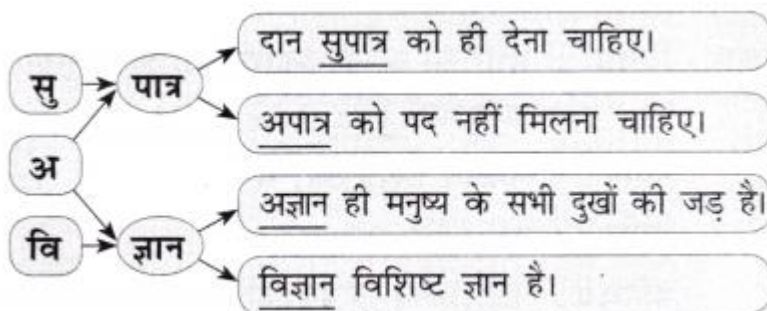 सु
अ
वि
पात्र
ज्ञान
दान सुपात्र को ही देना चाहिए।
अपात्र को पद नहीं मिलना चाहिए।
अज्ञान ही मनुष्य के सभी दुखों की जड़ है।
विज्ञान विशिष्ट ज्ञान है।